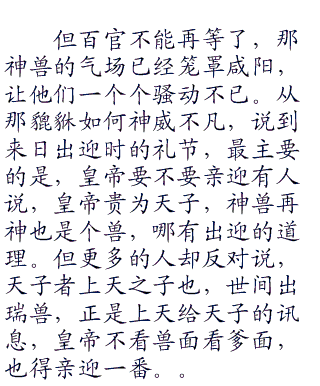 但百官不能再等了，那
神兽的气场已经笼罩咸阳，
让他们一个个骚动不已。从
那貔貅如何神威不凡，说到
来日出迎时的礼节，最主要
的是，皇帝要不要亲迎有人
说，皇帝贵为天子，神兽再
神也是个兽，哪有出迎的道
理。但更多的人却反对说，
天子者上天之子也，世间出
瑞兽，正是上天给天子的讯
息，皇帝不看兽面看爹面，
也得亲迎一番。。